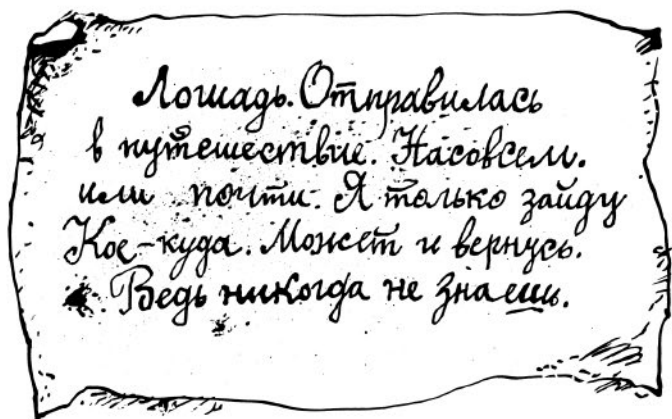 Лошадь. Отправилась
в путешествие. Насовсем.
или почти. Я только зайду
Кое-куда. Может и вернусь.
Ведь никогда не знаешь.